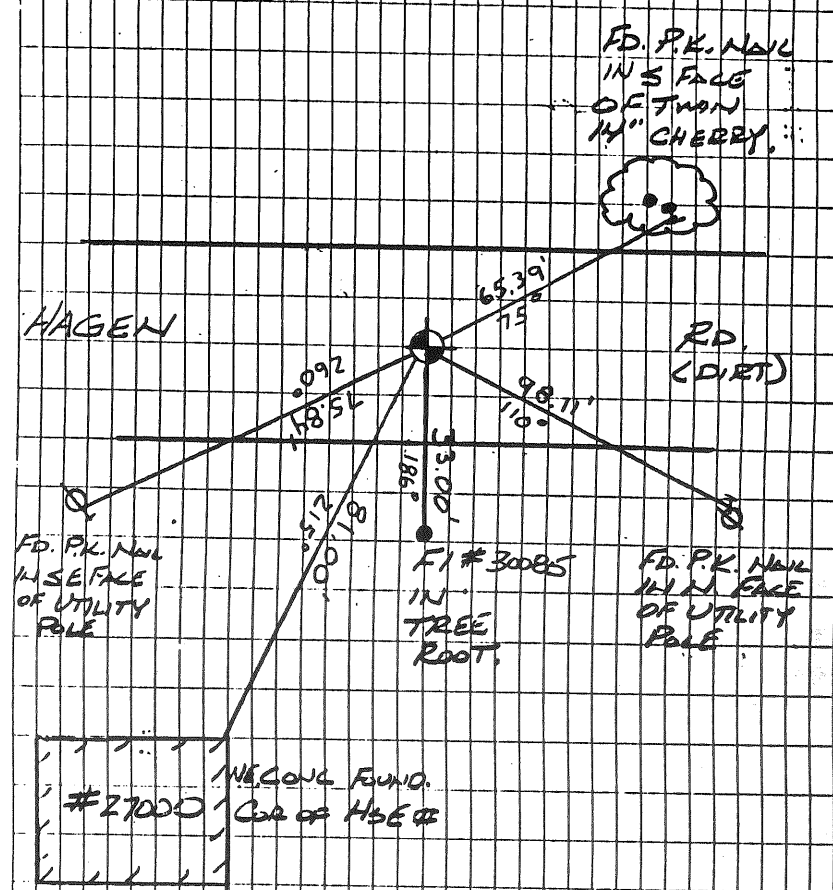 FD. P.K. NAIL
IN S FACE
OF TWIN
14" CHERRY.
65.39'
75°
HAGEN
RD.
(DIRT)
260°
75.84'
98.71'
110°
33.00'
186°
81.00'
215°
FD. P.K. NAIL
IN SE FACE
OF UTILITY
POLE
FI #30085
IN
TREE
ROOT.
FD. P.K. NAIL
IN N FACE
OF UTILITY
POLE
#27000
NE CONC FOUND.
COR OF HSE #